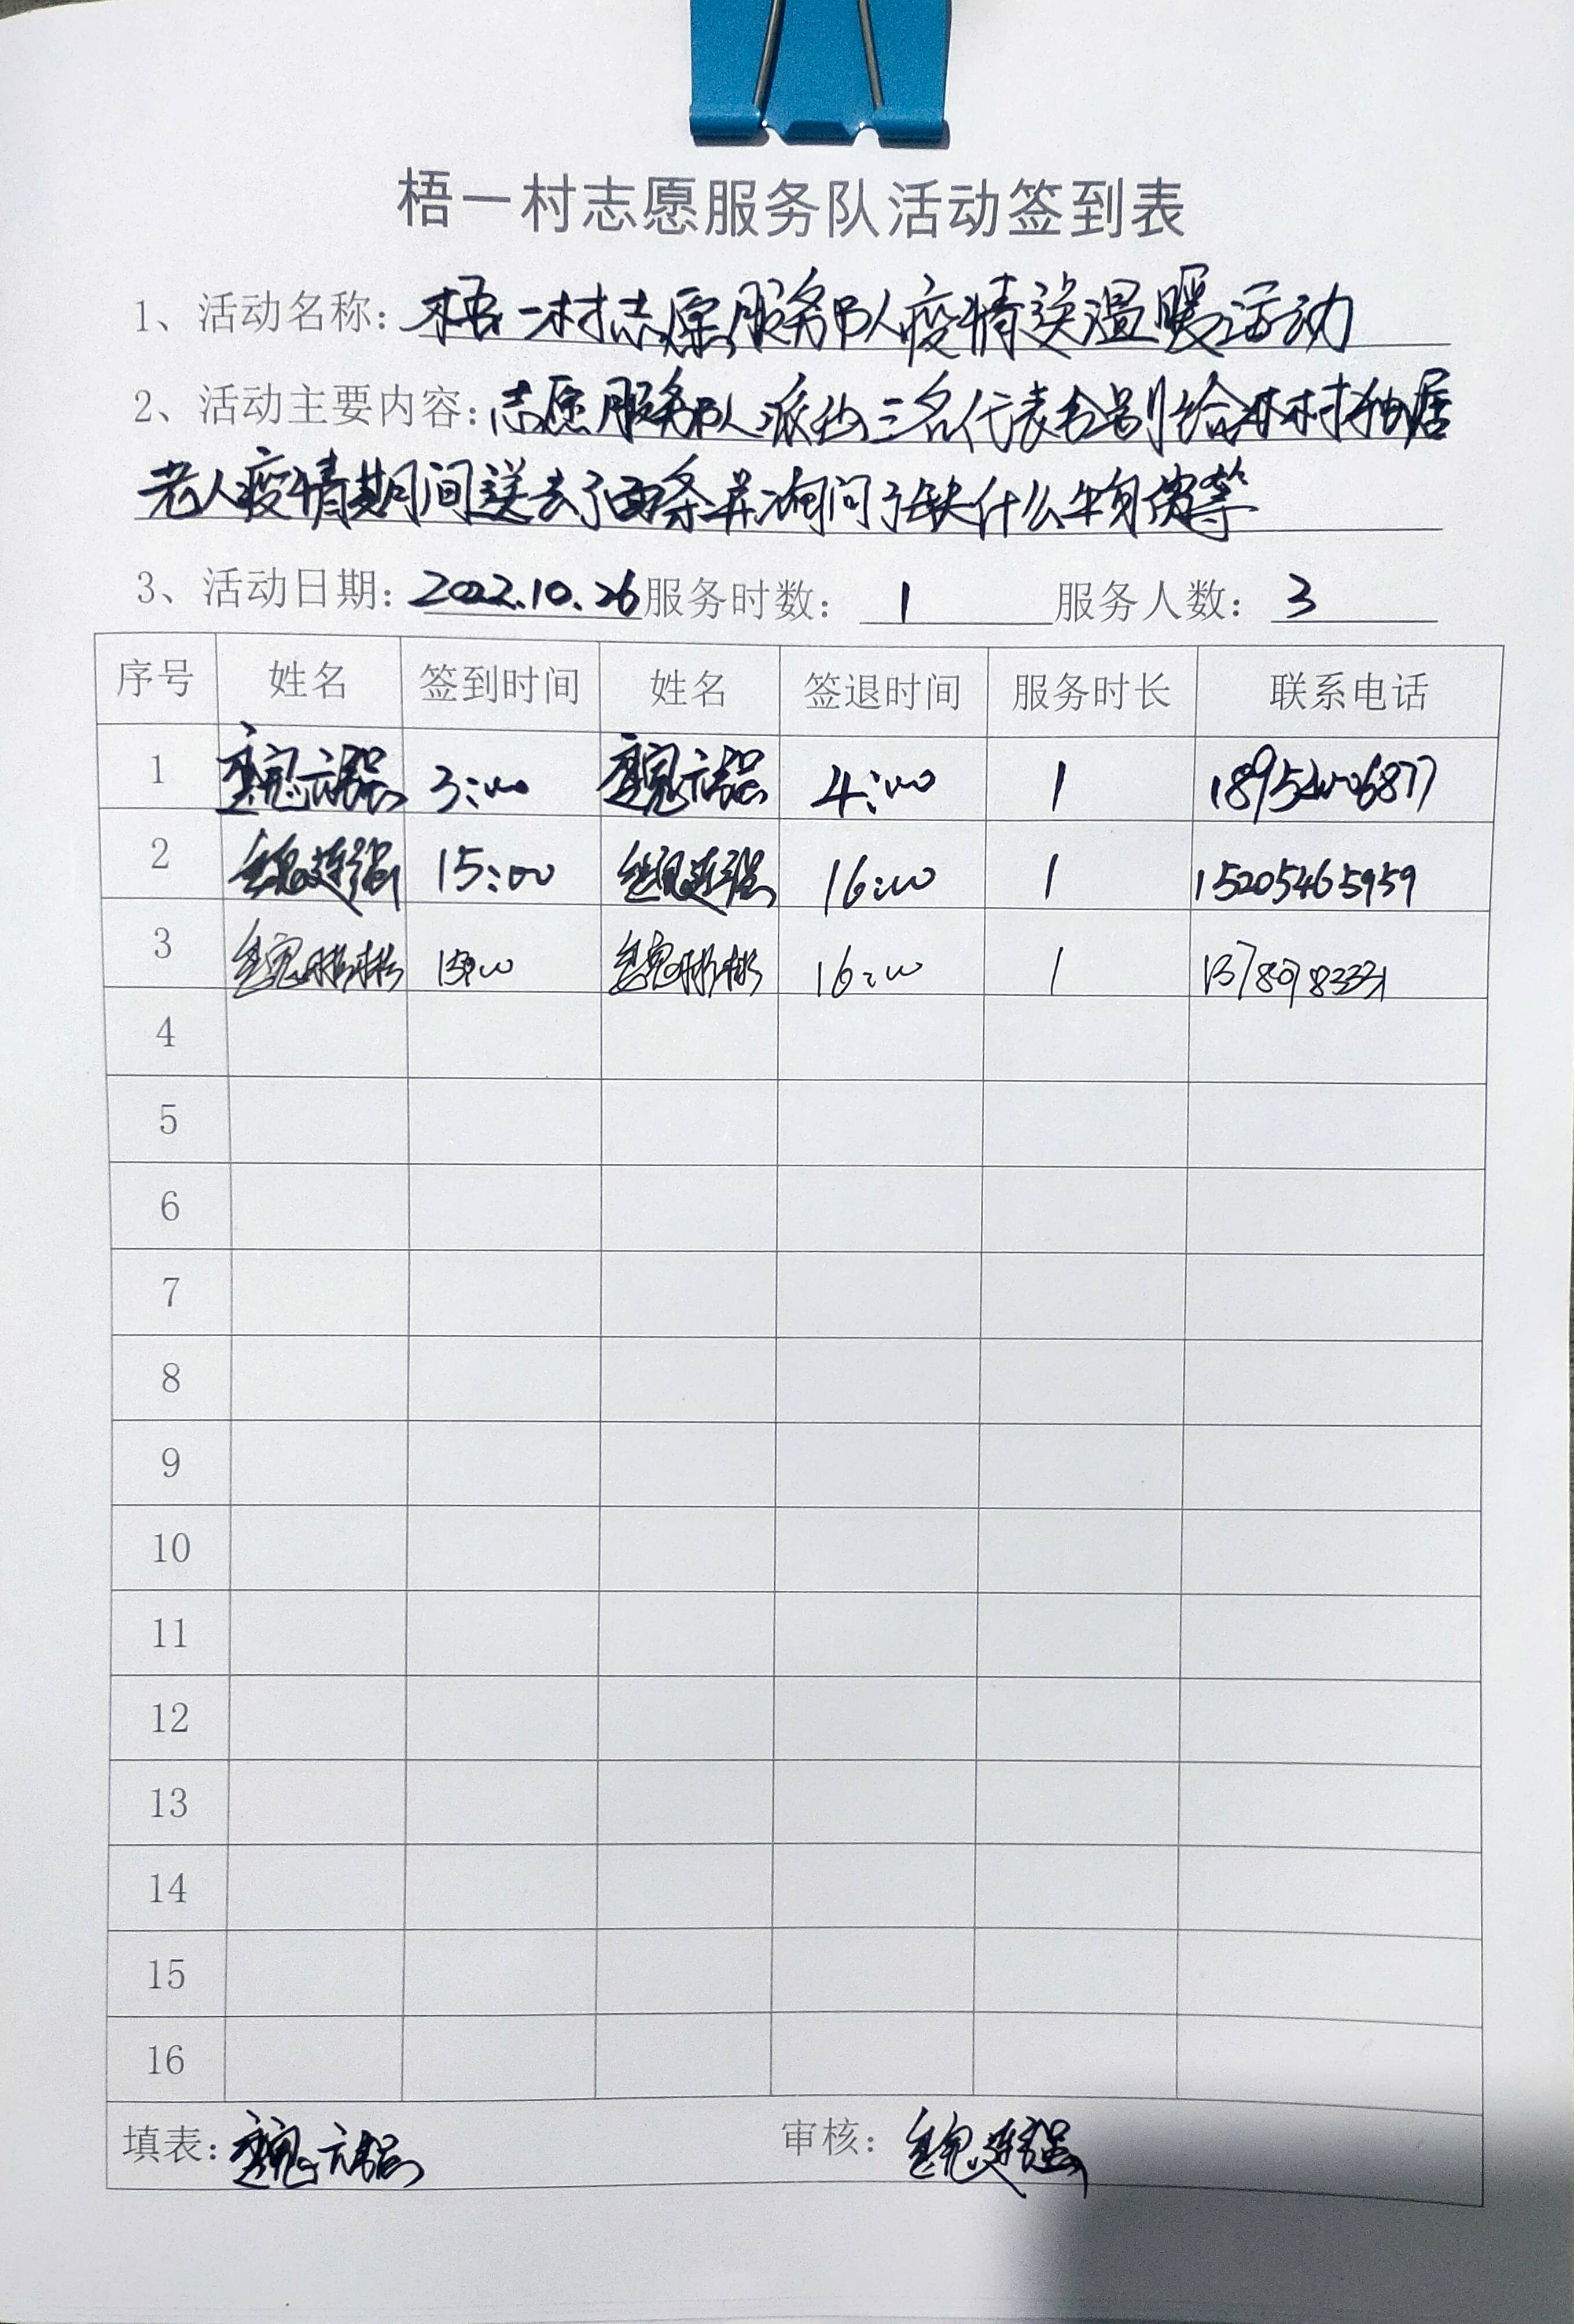 梧一村志愿服务队活动签到表
1、活动名称：梧一村志愿服务队疫情送温暖活动
2、活动主要内容：志愿服务队派出三名代表分别给本村独居
老人疫情期间送去了面条并询问了缺什么物资等
3、活动日期：2022.10.26 服务时数：1 服务人数：3
序号 姓名 签到时间 姓名 签退时间 服务时长 联系电话
1 3:00 4:00 1 18954006877
2 魏连强 15:00 魏连强 16:00 1 15205465959
3 15:00 16:00 1
4
5
6
7
8
9
10
11
12
13
14
15
16
填表： 审核：魏连强